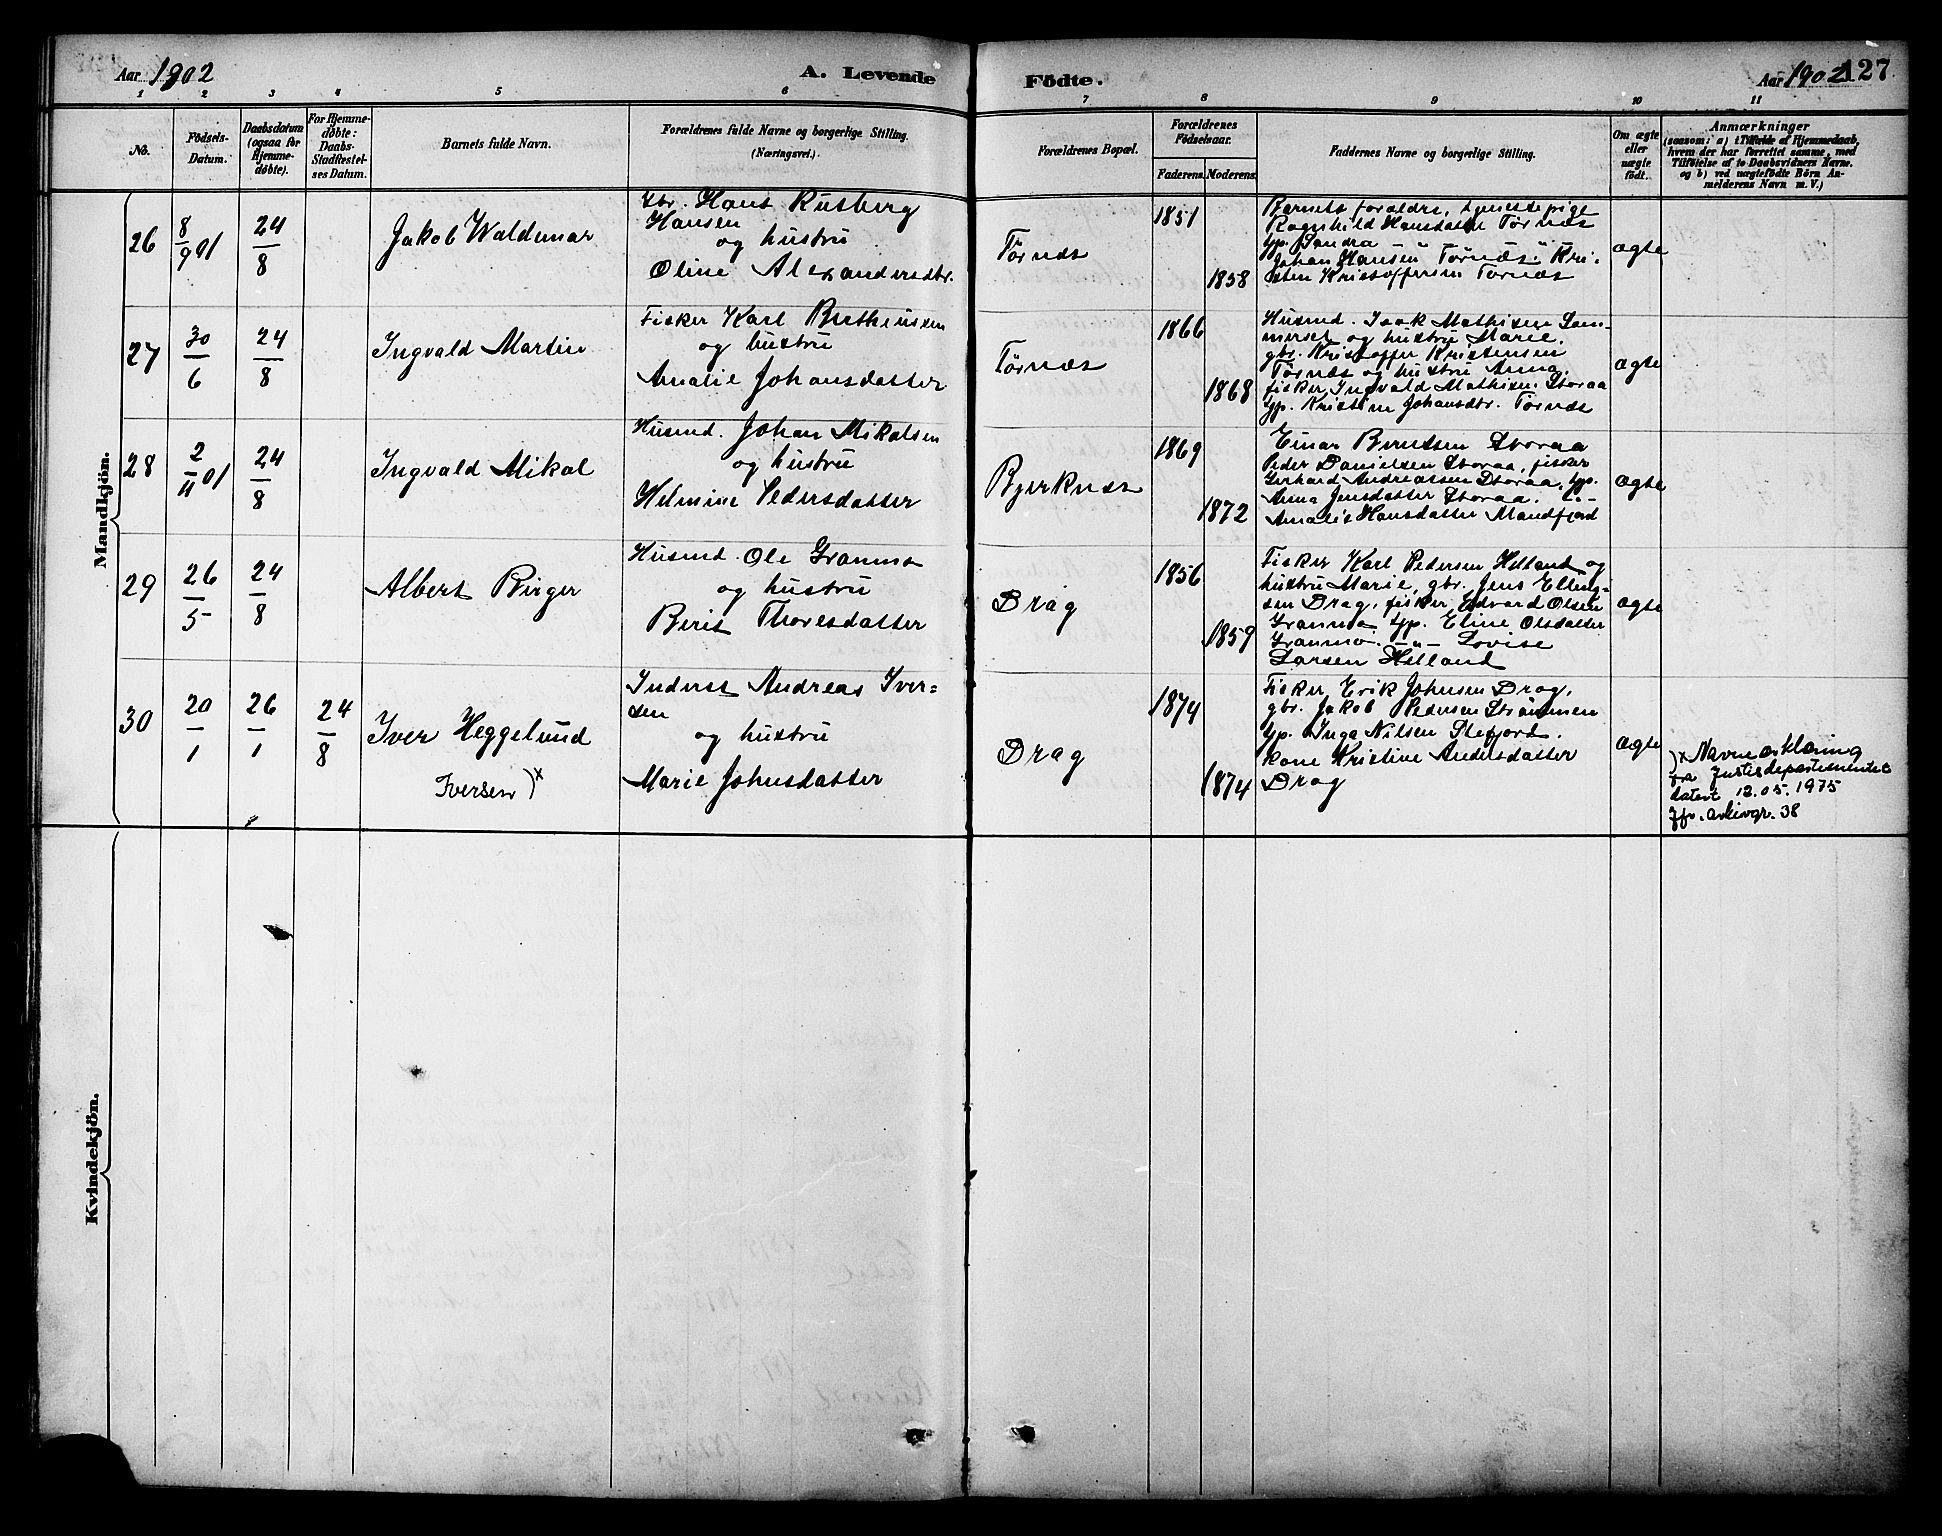 Aar 1902
A. Levende
Mandkjön.
Kvindekjön.
1 2 3 4 5 6
No.
Födsels-
Datum.
Daabsdatum
(ogsaa for
Hjemme-
døbte).
For Hjemme-
døbte:
Daabs-
Stadfæstel-
ses Datum.
Barnets fulde Navn.
Forældrenes fulde Navne og borgerlige Stilling.
(Næringsvei.)
26
8/9 01
24/8
Jakob Waldemar
Gbr. Hans Rusberg
Hansen
og hustru
Oline Alexandersdtr.
27
30/6
24/8
Ingvald Martin
Fisker Karl Bertheussen
og hustru
Amalie Johansdatter
28
2/11 01
24/8
Ingvald Mikal
Husmd. Johan Mikalsen
og hustru
Helmine Pedersdatter
29
26/5
24/8
Albert Birger
Husmd. Ole Granmo
og hustru
Berit Thoresdatter
30
20/1
26/1
24/8
Iver Heggelund
Iversen )x
Inderst Andreas Iver=
sen
og hustru
Marie Johnsdatter
Födte.
Aar 1902
127
7 8 9 10 11
Forældrenes Bopæl.
Forældrenes
Födselsaar.
Faderens.
Moderens.
Faddernes Navne og borgerlige Stilling.
Om ægte
eller
uægte
født.
Anmærkninger
(saasom: a) i Tilfælde af Hjemmedaab,
hvem der har forrettet samme, med
Tilföielse af to Daabsvidners Navne.
og b) ved uægtefödte Börn An-
melderens Navn m. V.)
Tørnes
1851
1858
Barnets forældre, tjenestepige
Ragnhild Hansdatter Tørnæs
tjp. Sandra
Johan Hansen Tørnæs. Kri-
sten Kristoffersen Tørnæs
ægte
Tørnæs
1866
1868
Husmd. Isak Mathisen Som-
merset og hustru Marie.
gbr. Kristoffer Kristensen
Tørnæs og hustru Anna.
fisker Ingvald Mathisen Storaa
tjp. Kristine Johansdtr. Tørnæs
ægte
Bjerknæs
1869
1872
Einar Berntsen Storaa
Peder Danielsen Storaa, fisker
Gerhard Andreassen Storaa, tjp.
Anna Jensdatter Storaa. -"-
Amalie Hansdatter Mandfjord
ægte
Drag
1856
1859
Fisker Karl Pedersen Helland og
hustru Marie, gbr. Jens Elling-
sen Drag, fisker Edvard Olsen
Granmo tjp. Eline Olsdatter
Granmo. -"- Lovise
Larsen Helland
ægte
Drag
1874
1874
Fisker Erik Johnsen Drag,
gbr. Jakob Pedersen Strömmen
tjp. Inga Nilsen Stefjord.
kone Kristine Andersdatter
Drag
ægte
)x Navneerklæring
fra Justisdepartementet
datert 12.05.1975
Jfr. arkivgr. 38